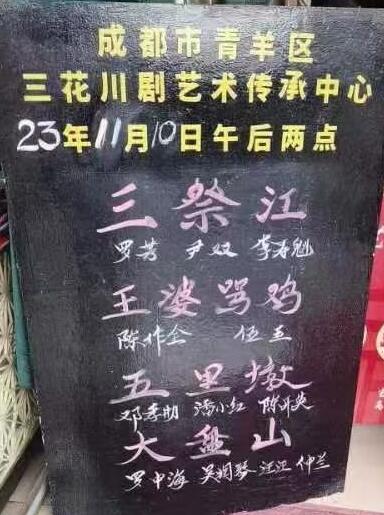 成都市青羊区
三花川剧艺术传承中心
23年11月10日午后两点
三祭江
罗芳 尹双 李存魁
王婆骂鸡
陈作全 伍三
五里墩
邓孝朋 潘小红 陈开
大盘山
罗中海 吴润琴 汪江 仲兰